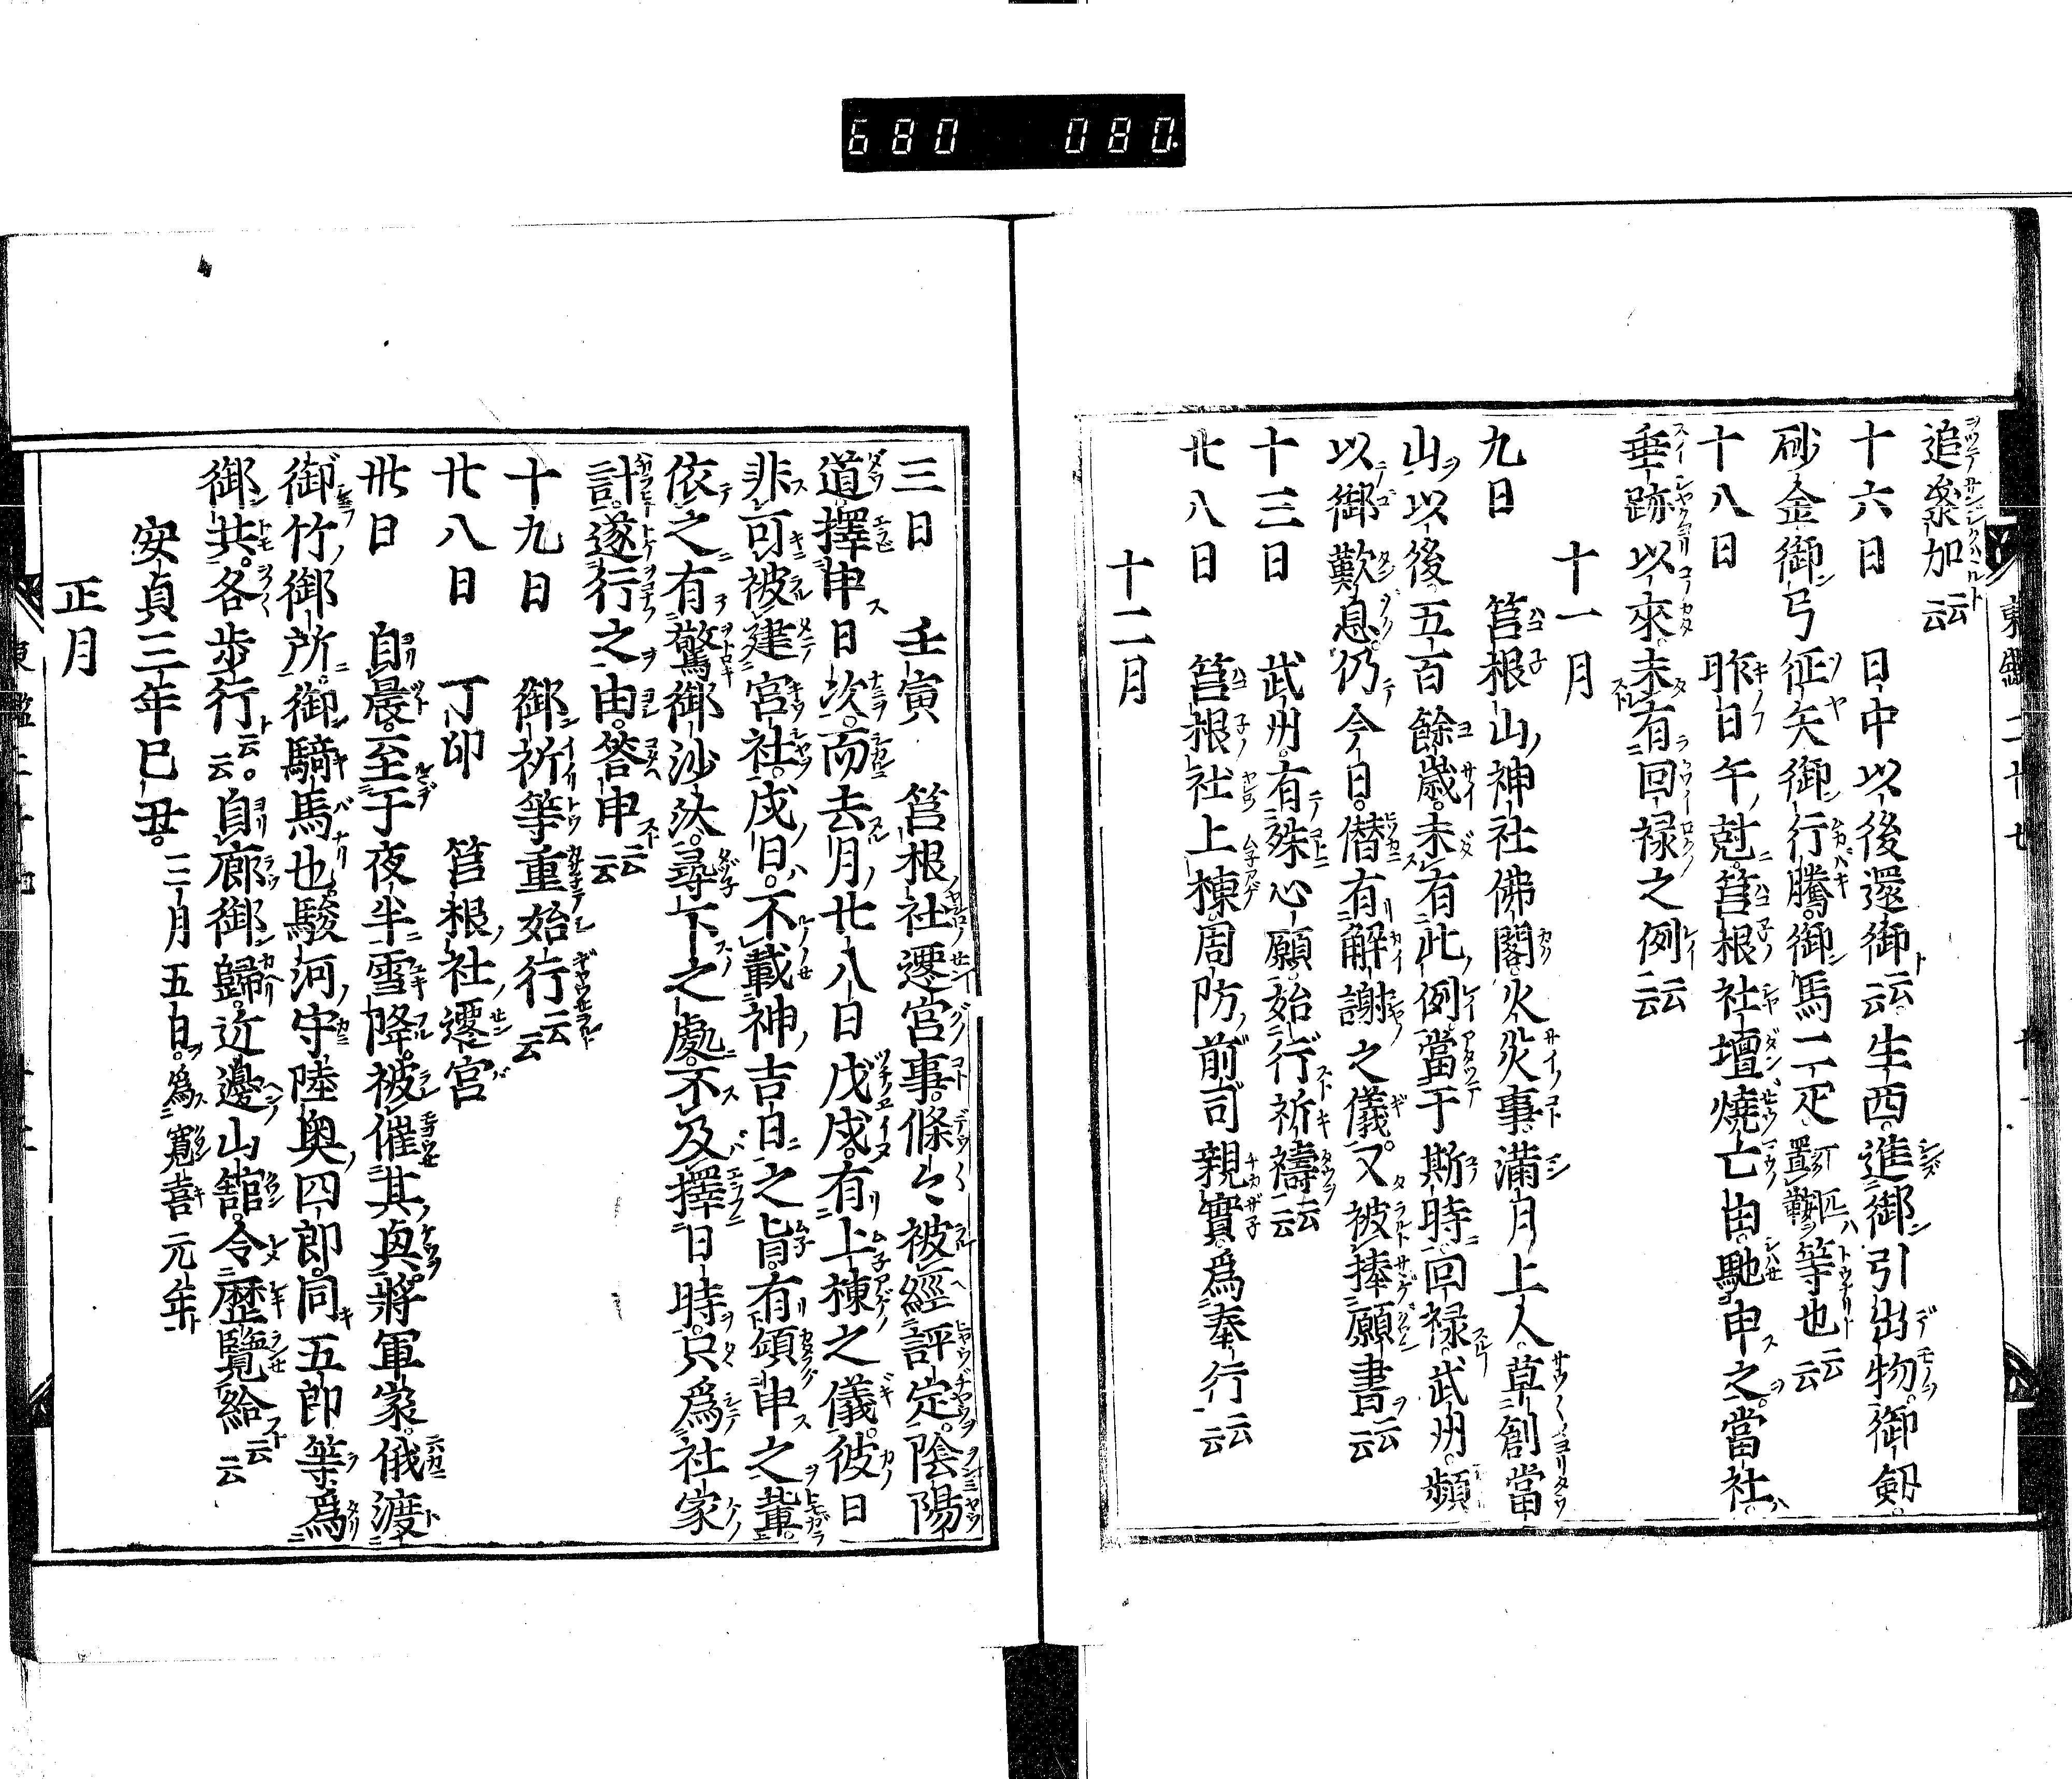 680 080.
追參加云云
十六日 日中以後還御云云。生西進御引出物。御剱。
砂金御弓征矢御行騰。御馬二疋一匹置鞍等也云云
十八日 昨日午尅。筥根社壇燒亡由。馳申之。當社。
垂跡以來未有回禄之例云云
十一月
九日 筥根山神社佛閣火災事。滿月上人。草創當
山以後五百餘歳。未有此例。當于斯時回禄。武州。頻
以御歎息。仍今日。潜有解謝之儀。又被捧願書云云
十三日 武州。有殊心願。始行祈禱云云
廿八日 筥根社上棟。周防前司親實。爲奉行云云
十二月
三日 壬寅 筥根社遷宮事。條々被經評定。陰陽
道擇申日次。而去月廿八日戊戌。有上棟之儀。彼日
非可被建宮社。戌日。不載神吉日之旨。有傾申之輩。
依之有驚御沙汰。尋下之處。不及擇日時。只爲社家
計。遂行之由。答申云云
十九日 御祈等重始行云云
廿八日 丁卯 筥根社遷宮
卅日 自晨。至于夜半雪降。被催其興。將軍家。俄渡
御竹御所。御騎馬也。駿河守陸奥四郎。同五郎等爲
御共。各歩行云云。自廊御歸。近邊山舘。令歴覽給云云
安貞三年己丑。三月五日。爲寛喜元年
正月